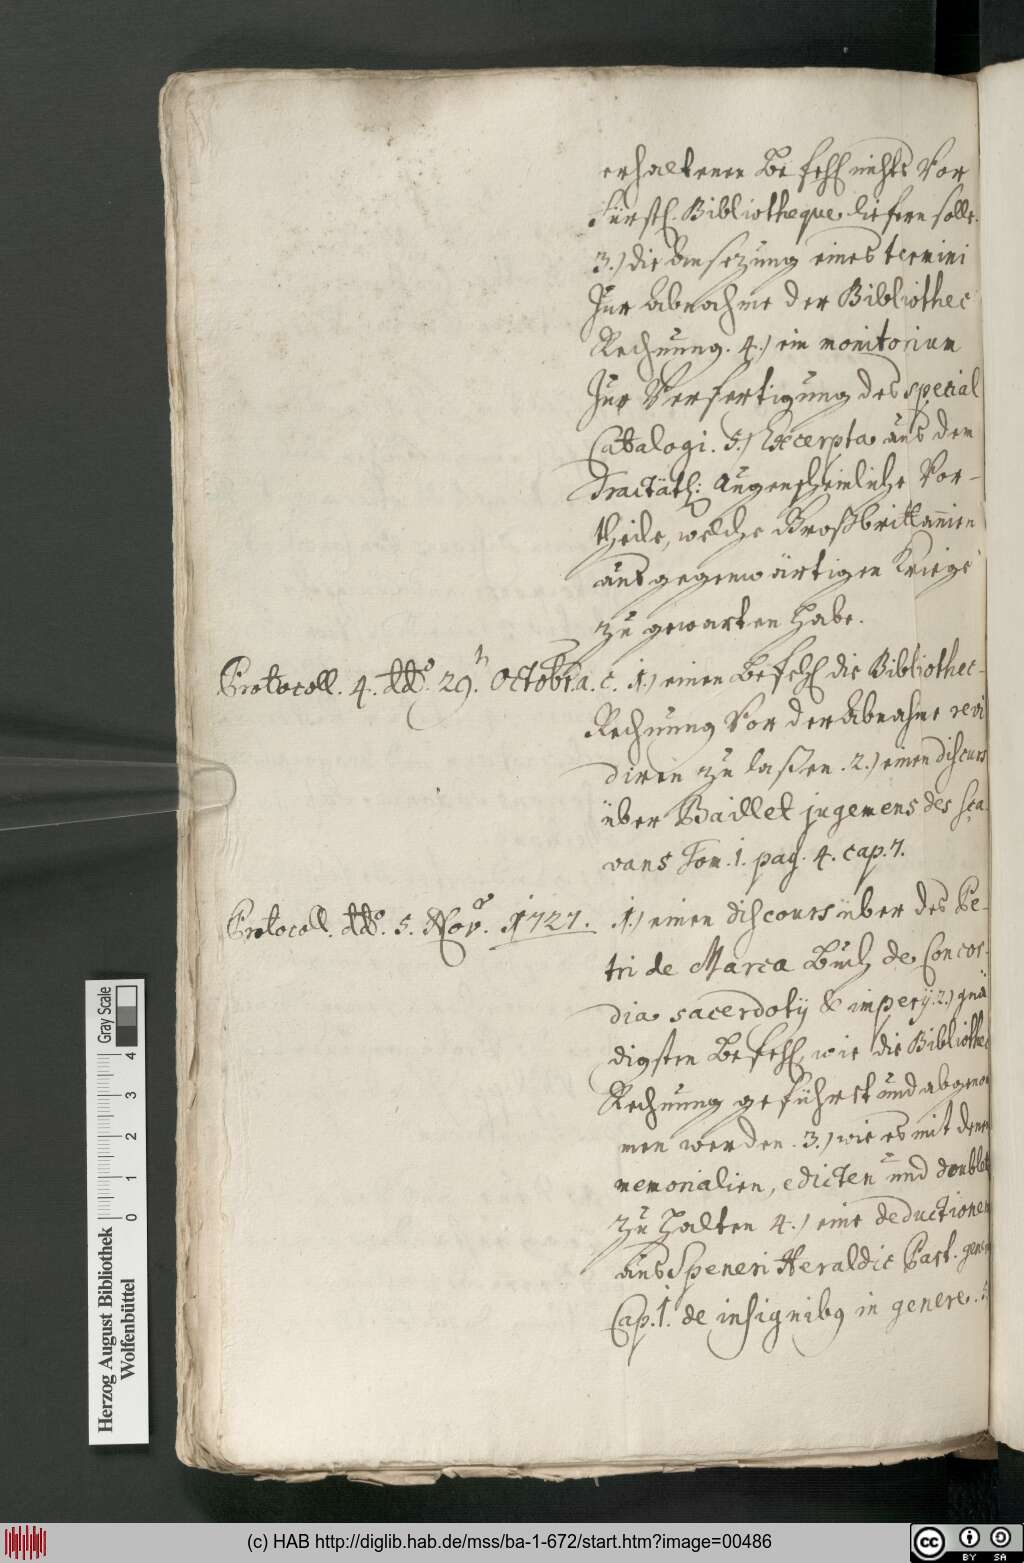 erhaltenen Befehl nichts Vor
Fürstl. Bibliotheque liefern solle.
3.) die Ansezung eines termini
Zur Abnahme der Bibliothec
Rechnung. 4.) ein monitorium
Zur Verfertigung des special
Catalogi. 5.) Excerpta aus dem
Tractätl: Augenscheinliche Vor-
theile, welche Großbrittannien
aus gegenwärtigen Kriege
zu gewarten habe.
Protocoll. 4. dd. 29. Octobr. a. c. 1.) einen Befehl die Bibliothec-
Rechnung Vor der Abnahme revi
diren zu laßen. 2.) einen discurs
über Baillet jugemens des sça-
vans Tom. 1. pag. 4. cap. 7.
Protocoll. dd. 5. Nov. 1727. 1.) einen discours über des Pe-
tri de Marca Buch de Concor-
dia sacerdotij & imperij. 2.) gnä
digsten Befehl, wie die Bibliothec
Rechnung geführt und abgenom
men werden. 3.) wie es mit denen
memorialien, edicten und doublet
zu halten 4.) eine deductionem
aus Speneri Heraldic Part. gener
Cap. 1. de insignibq in genere. 5.
Herzog August Bibliothek
Wolfenbüttel
0 1 2 3 4
Gray Scale
(c) HAB http://diglib.hab.de/mss/ba-1-672/start.htm?image=00486
cc BY SA